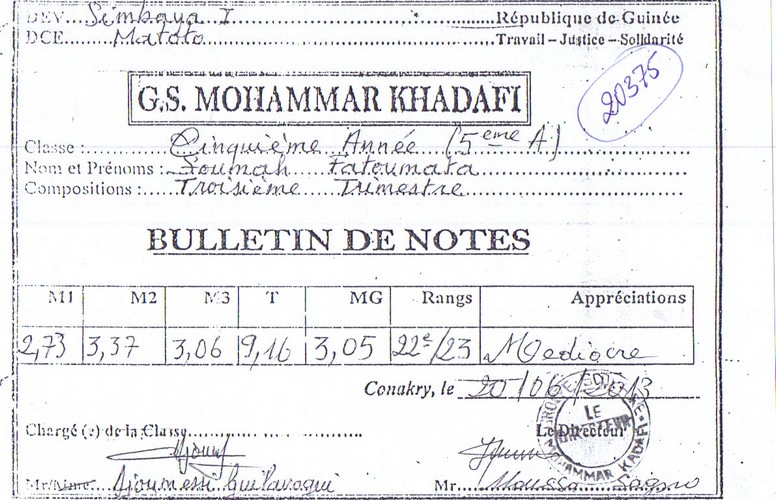 DEV....Simbaya I.................République de Guinée
DCE......Matoto.................Travail – Justice – Solidarité
20375
G.S. MOHAMMAR KHADAFI
Classe :.........Cinquième Année (5eme A)
Nom et Prénoms :..Soumah Fatoumata................
Compositions :....Troisième Trimestre................
BULLETIN DE NOTES
M1 M2 M3 T MG Rangs Appréciations
2,73 3,37 3,06 9,16 3,05 22e/23 Mediocre
Conakry, le 20/06/2013
Chargé (e) de la Classe.................... Le Directeur
LE DIRECTEUR
MOHAMMAR KADAFI
Mr/Mme Guilavogui Mr....Moussa